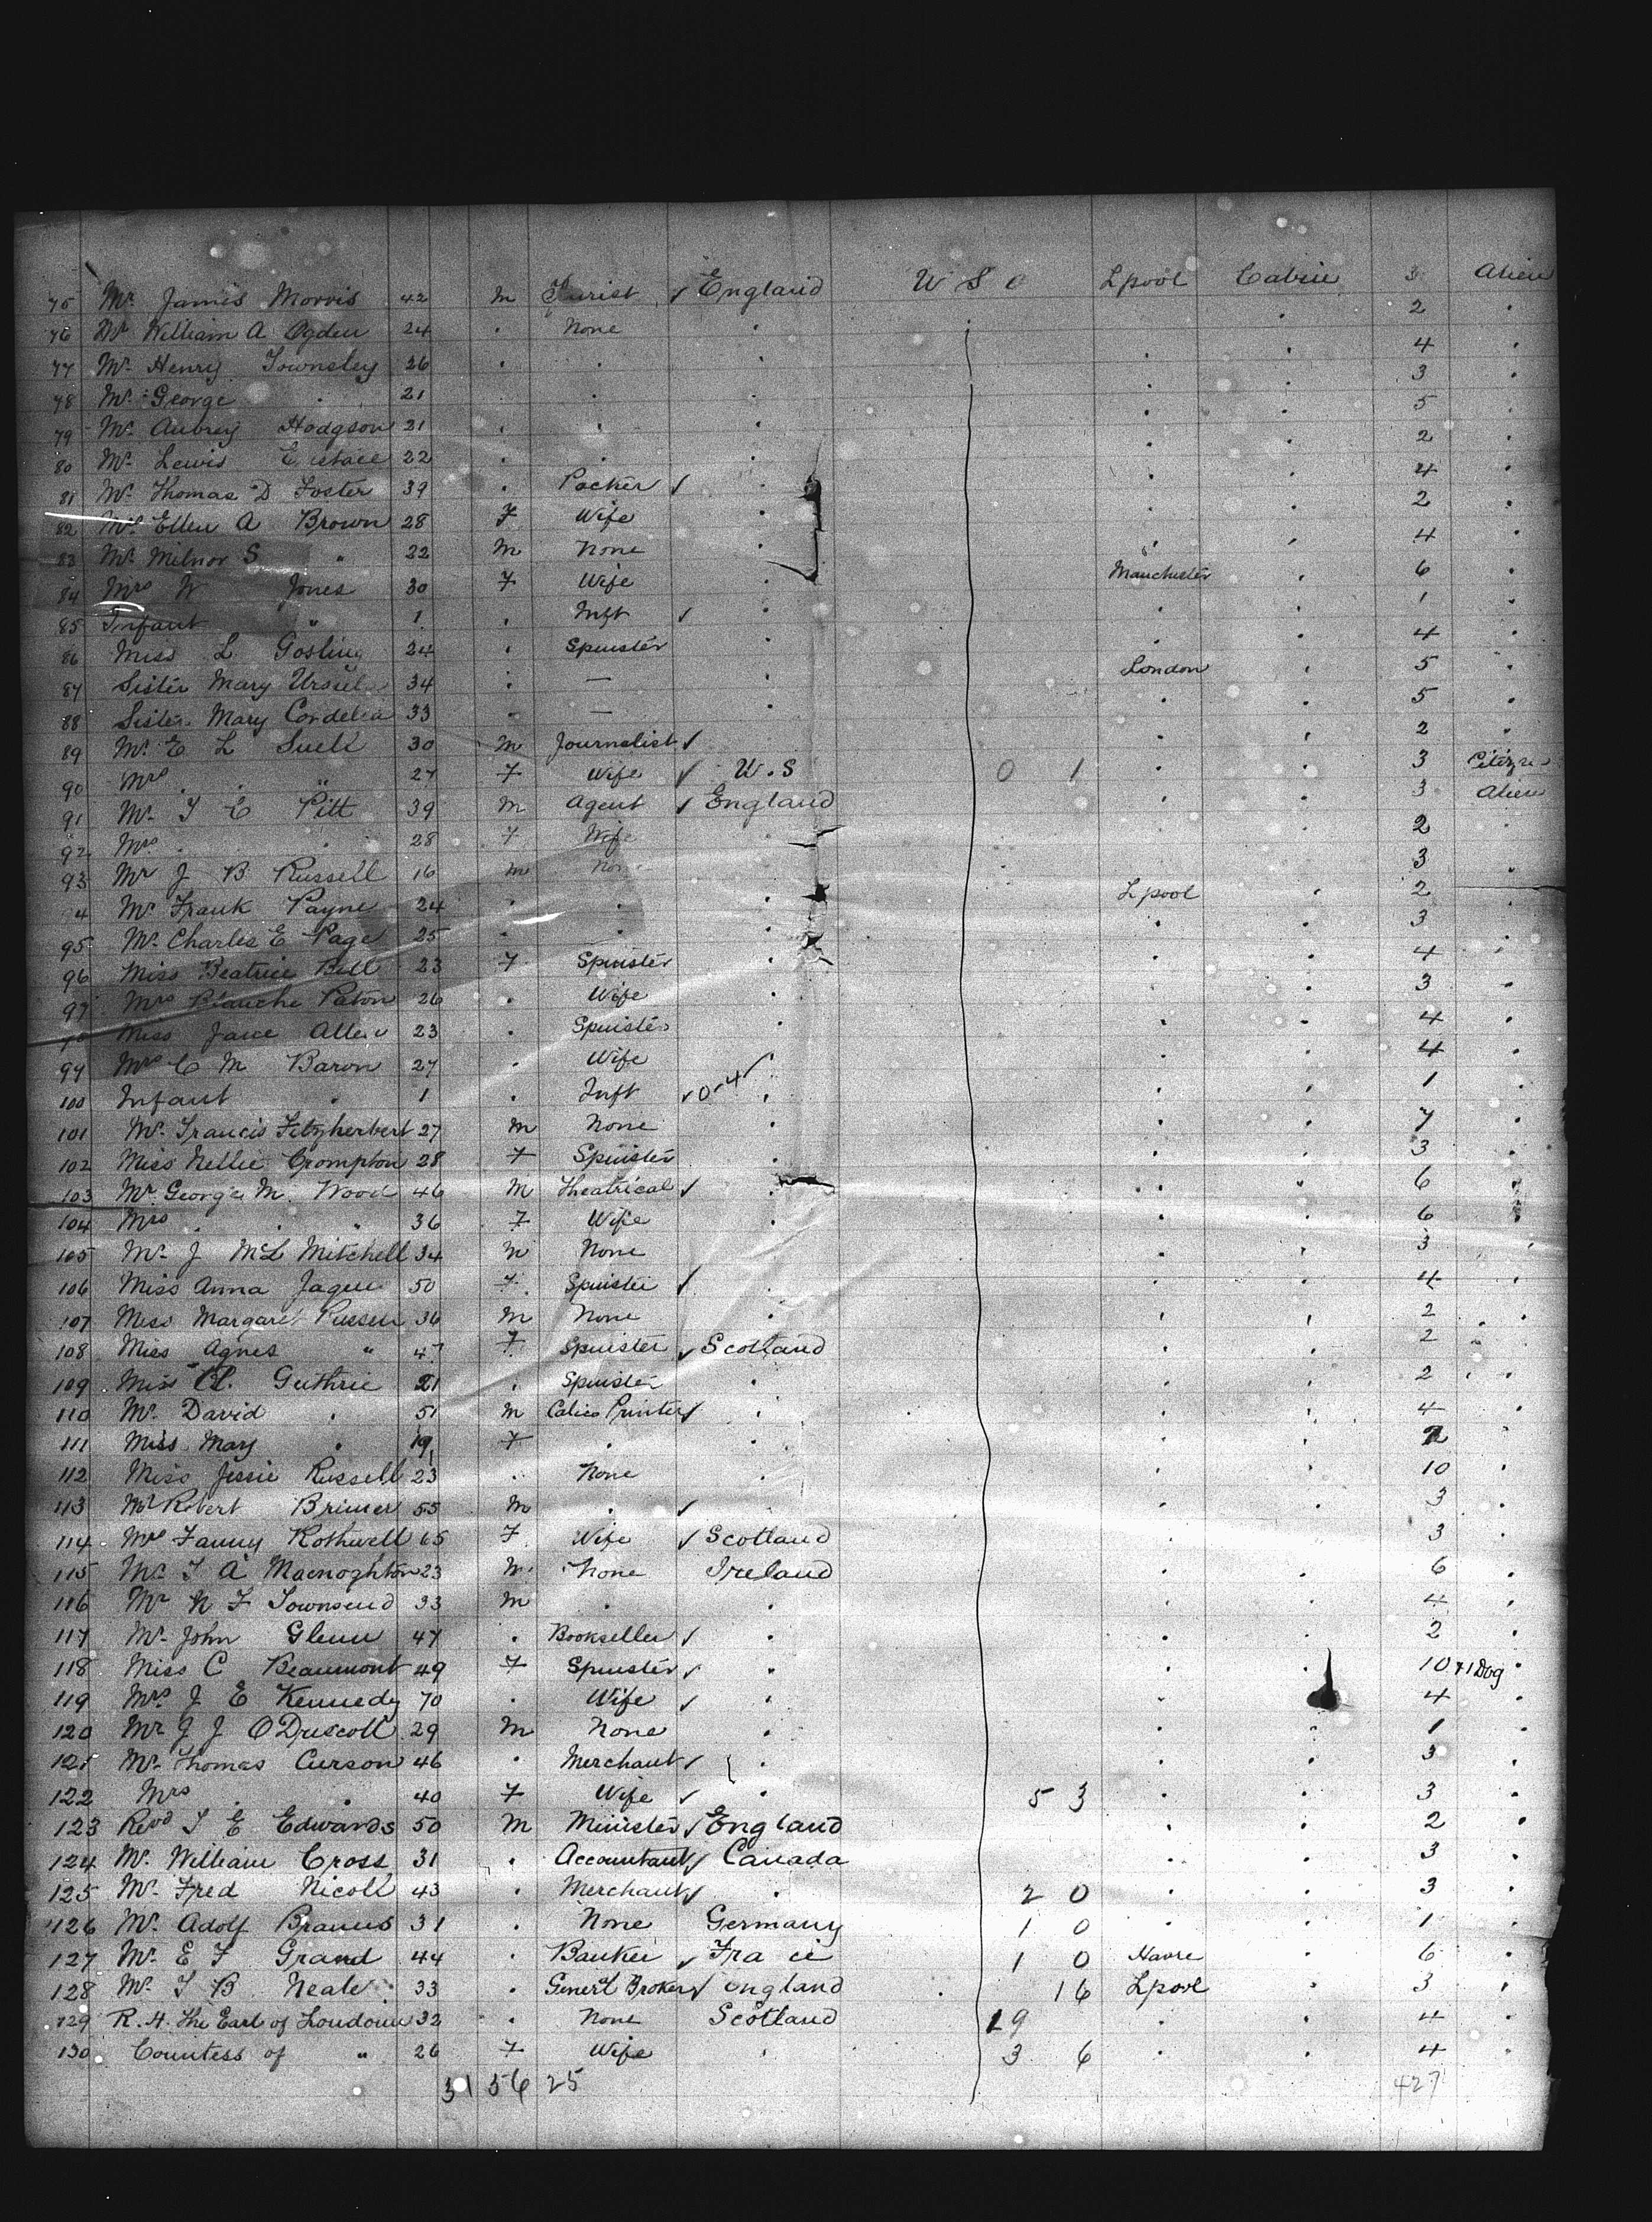 75 Mr. James Morris 42 m Turist ✓ England U S O Lpool Cabin 3 Alien
76 Mr William A Ogden 24 . None . . 2 .
77 Mr. Henry Townsley 26 . . . . . 4 .
78 Mr. George . 21 . . . . . 3 .
79 Mr. Aubrey Hodgson 21 . . . . . 5 .
80 Mr. Lewis 22 . . . . . 2 .
81 Mr. Thomas D Foster 39 . Packer ✓ . . . 4 .
82 Mrs Ellen A Brown 28 F Wife . . . 2 .
83 Mr. Milnor S " 22 m None . . . 4 .
84 Mrs W Jones 30 F Wife . Manchester . 6 .
85 Infant " 1 . Inft ✓ . . . 1 .
86 Miss L Gosling 24 . Spinster . . 4 .
87 Sister Mary Ursula 34 . — . London . 5 .
88 Sister Mary Cordelia 33 . — . . . 5 .
89 Mr. E L Snell 30 m Journalist ✓ . . . 2 .
90 Mrs . " 27 F Wife ✓ U.S 0 1 . . 3 Citizen
91 Mr. T E Pitt 39 m Agent ✓ England . . 3 Alien
92 Mrs . . 28 F Wife . . 2 .
93 Mr J B Russell 16 m Non . . 3 .
4 Mr Frank Payne 24 . . . Lpool . 2
95 Mr. Charles E Page 25 . . . . . 3 .
96 Miss Beatrice Bell 23 F Spinster . . . 4 .
97 Mrs Blanche Paton 26 . Wife . . . 3 .
Miss Jane Allen 23 . Spinster . . 4 .
99 Mrs C M Baron 27 . Wife . . 4 .
100 Infant . 1 . Inft ✓ 0-4 ✓ . . . 1 .
101 Mr. Francis Fitzherbert 27 m None . . . 7 .
102 Miss Nellie Crompton 28 F Spinster . . . 3 .
103 Mr George M. Wood 46 m Theatrical ✓ . . . 6 .
104 Mrs . . " 36 F Wife . . . 6
105 Mr. J McL Mitchell 34 m None . . 3 .
106 Miss Anna 50 F. Spinster ✓ . . . 4 .
107 Miss Margaret Russell 36 m None . . . 2 .
108 Miss Agnes " 47 F Spinster ✓ Scotland . . 2
109 Miss Guthrie 21 . Spinster . . . 2 .
110 Mr. David . 51 m Calico Printer ✓ . . . 4 .
111 Miss Mary . 19 F . . . . 2 .
112 Miss Jessie Russell 23 . None . . . 10 .
113 Mr Robert Brimer 55 m . ✓ . . 3 .
114 Mrs Fanny Rothwell 65 F Wife ✓ Scotland . . 3 .
115 Mr. T A Macnoghton 23 m None Ireland . . 6 .
116 Mr N F Townsend 33 m . . . . 4 .
117 Mr. John Glenn 47 . Bookseller ✓ . . . 2 .
118 Miss C Beaumont 49 F Spinster ✓ . . 10 + 1 Dog .
119 Mrs. J E Kennedy 70 . Wife ✓ . . 4 .
120 Mr J J O'Driscoll 29 m None . . . 1 .
121 Mr. Thomas Curson 46 . Merchant ✓ . . . 3 .
122 Mrs . . 40 F Wife ✓ . 5 3 . . 3 .
123 Revd T E Edwards 50 m Minister ✓ England . . 2 .
124 Mr. William Cross 31 . Accountant ✓ Canada . . 3 .
125 Mr. Fred Nicoll 43 . Merchant ✓ . 2 0 . . 3 .
126 Mr. Adolf 31 . None Germany 1 0 . . 1 .
127 Mr. E F Grand 44 . Banker ✓ France 1 0 Havre . 6 .
128 Mr. T B Neale 33 . Generl Broker ✓ England 16 Lpool . 3 .
129 R. H. The Earl of Loudoun 32 . None Scotland 19 . . 4 .
130 Countess of " 26 F Wife . 3 6 . . 4 .
31 56 25 427